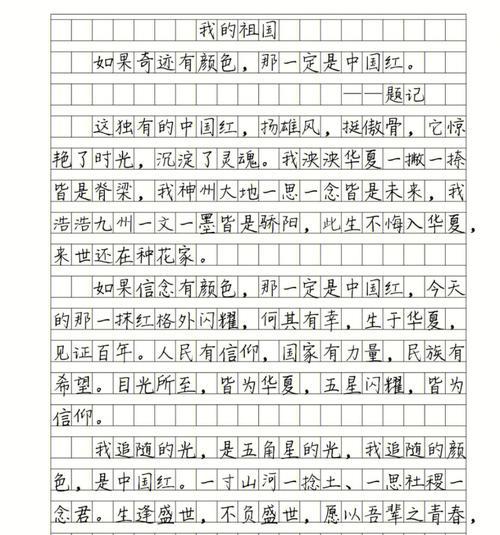 我的祖国
如果奇迹有颜色，那一定是中国红。
——题记
这独有的中国红，扬雄风，挺傲骨，它惊
艳了时光，沉淀了灵魂。我泱泱华夏一撇一捺
皆是脊梁，我神州大地一思一念皆是未来，我
浩浩九州一文一墨皆是骄阳，此生不悔入华夏，
来世还在种花家。
如果信念有颜色，那一定是中国红，今天
的那一抹红格外闪耀，何其有幸，生于华夏，
见证百年。人民有信仰，国家有力量，民族有
希望。目光所至，皆为华夏，五星闪耀，皆为
信仰。
我追随的光，是五角星的光，我追随的颜
色，是中国红。一寸山河一捻土、一思社稷一
念君。生逢盛世，不负盛世，愿以吾辈之青春，